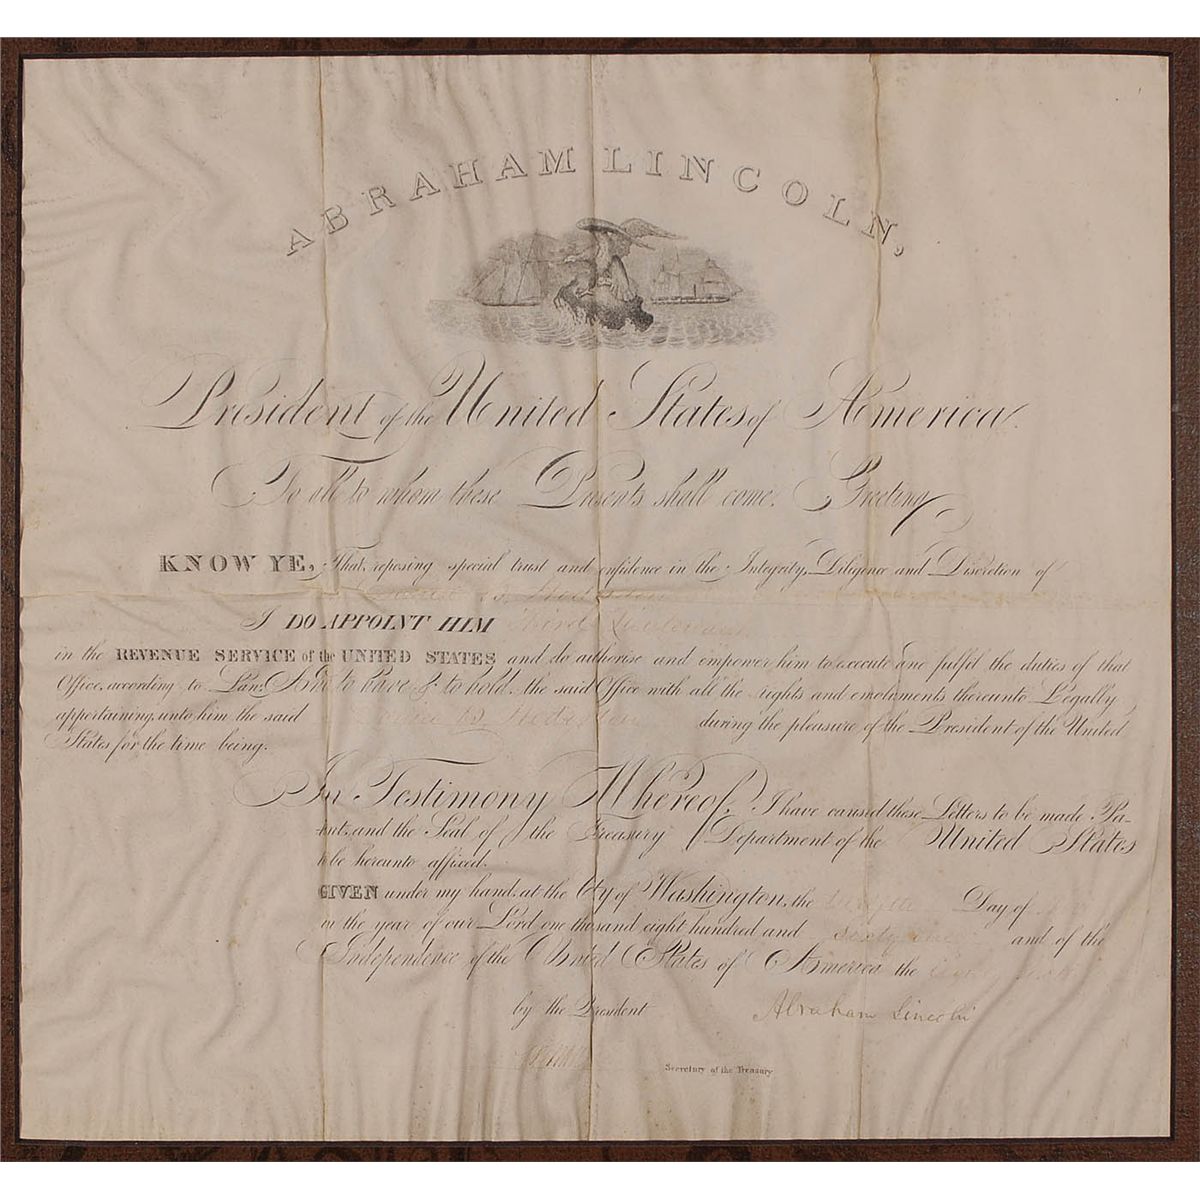 ABRAHAM LINCOLN,
President of the United States of America.
To all to whom these Presents shall come, Greeting
KNOW YE, That, reposing special trust and confidence in the Integrity, Diligence and Discretion of
I DO APPOINT HIM Third Lieutenant
in the REVENUE SERVICE of the UNITED STATES and do authorise and empower him to execute and fulfil the duties of that
Office, according to Law: And to have & to hold, the said Office with all the rights and emoluments thereunto Legally
appertaining, unto him the said during the pleasure of the President of the United
States for the time being.
In Testimony Whereof, I have caused these Letters to be made Pa-
tent, and the Seal of the Treasury Department of the United States
to be hereunto affixed.
GIVEN under my hand, at the City of Washington, the Day of
in the year of our Lord one thousand eight hundred and sixty and of the
Independence of the United States of America the
by the President Abraham Lincoln
Secretary of the Treasury